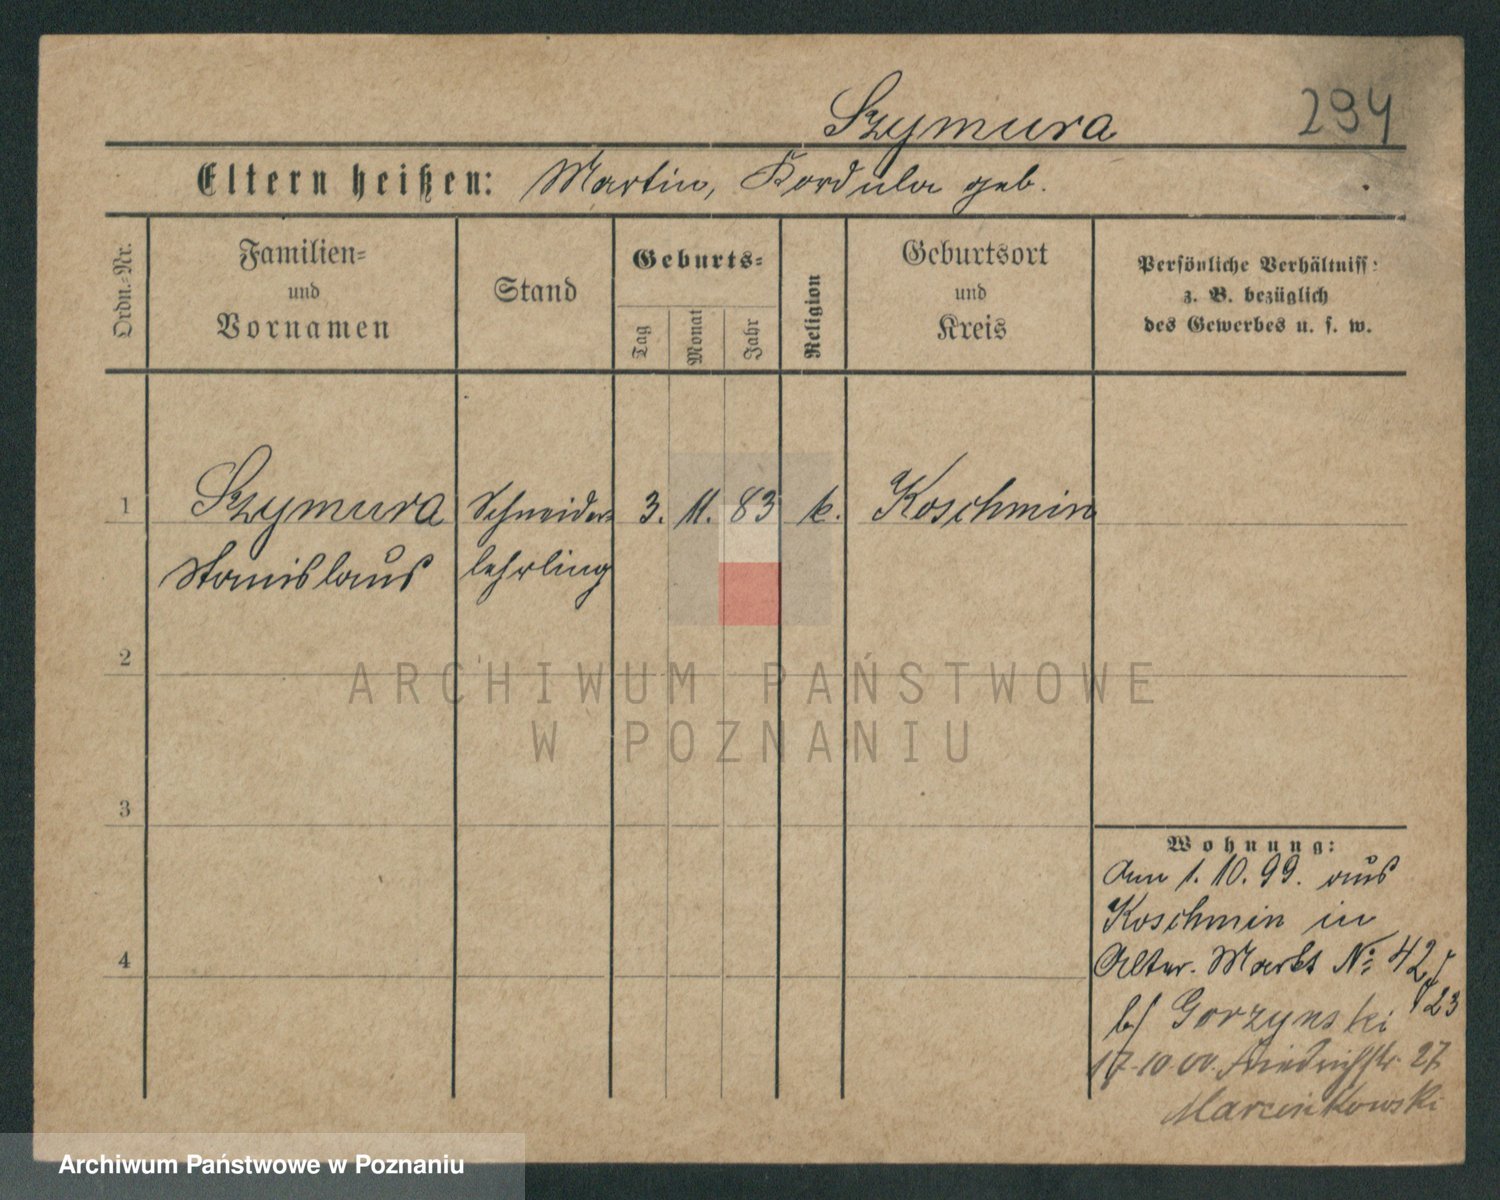 Szymura 294
Eltern heißen: Martin, Kordula geb.
Ordn.-Nr.
Familien-
und
Vornamen
Stand
Geburts-
Tag
Monat
Jahr
Religion
Geburtsort
und
Kreis
Persönliche Verhältniss:
z. B. bezüglich
des Gewerbes u. s. w.
1 Szymura Schneider- 3. 11. 83 k. Koschmin
Stanislaus lehrling
2
ARCHIWUM PAŃSTWOWE
W POZNANIU
3
Wohnung:
Am 1. 10. 99. aus
Koschmin in
4
Alter. Markt No 42
23
b/ Gorzynski
17.10.00. Friedrichstr. 27
Marcinkowski
Archiwum Państwowe w Poznaniu